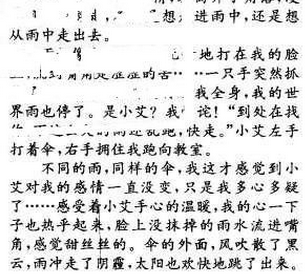 想，进雨中，还是想
从雨中走出去。
地打在我的脸
一只手突然抓
我全身，我的世
界雨也停了。是小艾？我 诧！“到处在找
快走。”小艾左手
打着伞，右手拥住我跑向教室。
不同的雨，同样的伞，我这才感觉到小
艾对我的感情一直没变，只是我多心多疑
了……感受着小艾手心的温暖，我的心一下
子也热乎起来，脸上没抹掉的雨水流进嘴
角，感觉甜丝丝的。伞的外面，风吹散了黑
云，雨冲走了阴霾，太阳也欢快地跳了出来。